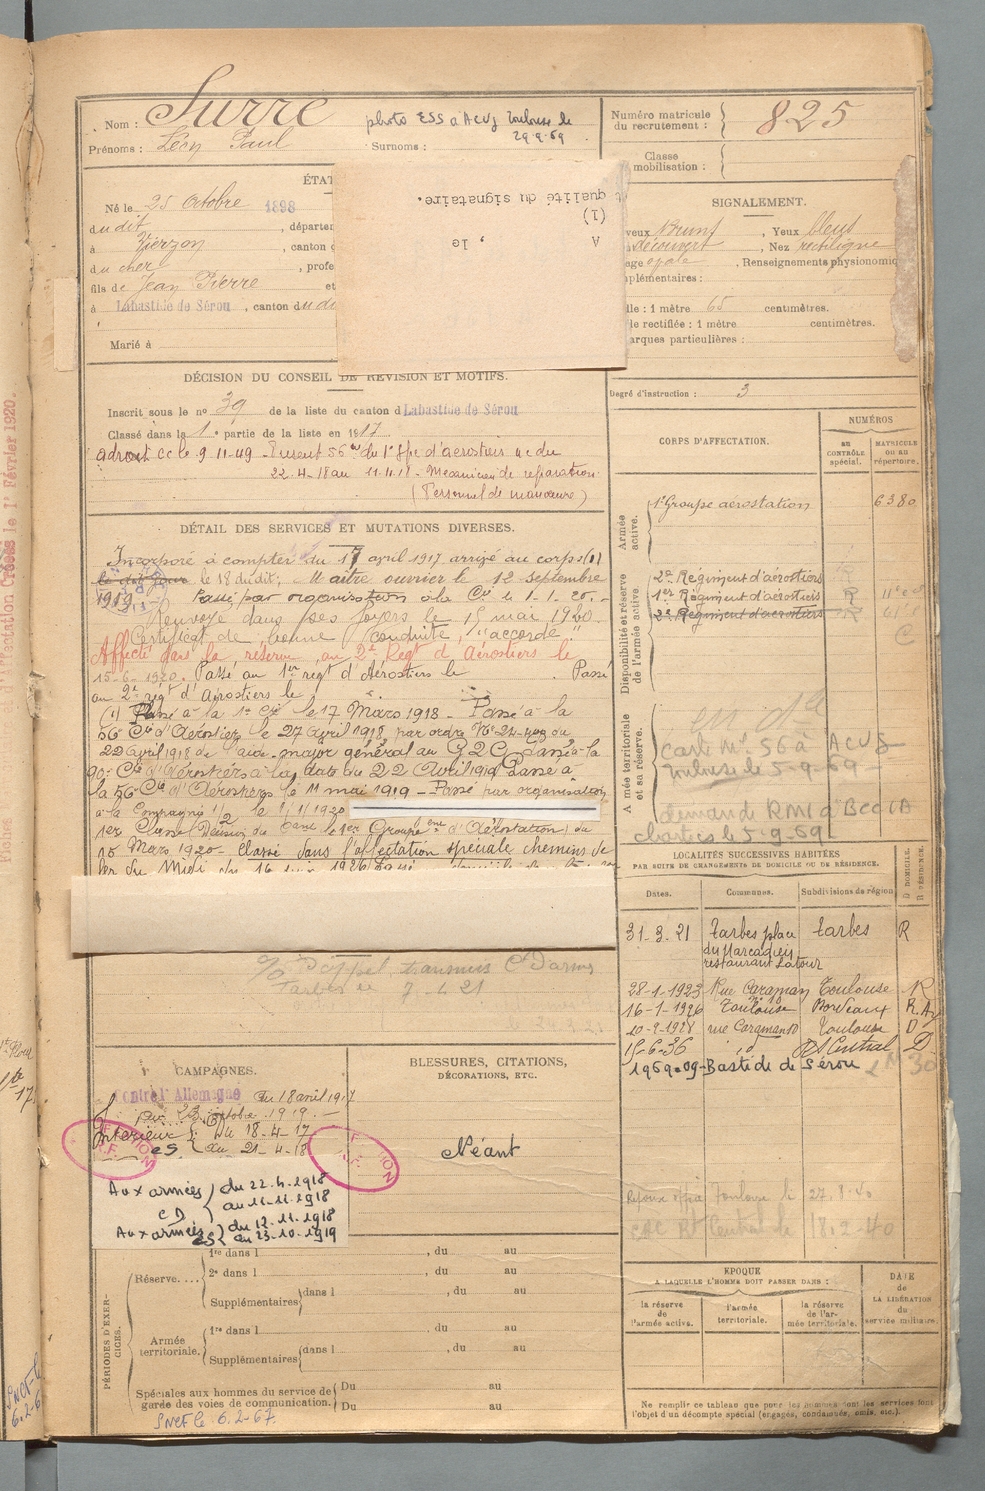 Nom : Surre
Prénoms : Léon Paul
Surnoms :
photo ESS a ACVG Toulouse le
29-9-69
Numéro matricule
du recrutement :
825
Classe
mobilisation :
ÉTAT
Né le 25 Octobre 1898
dudit, départe
à Vierzon, canton
du cher, profe
fils de Jean Pierre et
à Labastide de Sérou, canton du di
Marié à
qualité du signataire.
(1)
A , le
SIGNALEMENT.
veux bruns, Yeux bleus
découvert, Nez rectiligne
age ovale. Renseignements physionomiq
plémentaires :
lle : 1 mètre 65 centimètres.
le rectifiée : 1 mètre centimètres.
arques particulières :
Degré d'instruction : 3
DÉCISION DU CONSEIL DE REVISION ET MOTIFS.
Inscrit sous le no 39 de la liste du canton d Labastide de Sérou
Classé dans la 1e partie de la liste en 1917
a droit CC le 9-11-49
du
22-4-18 au 11.11.18 - Mécanicien de réparation
(Personnel de manœuvre)
DÉTAIL DES SERVICES ET MUTATIONS DIVERSES.
Incorporé à compter du 17 avril 1917 arrivé au corps (1)
le dit jour le 18 dudit; Maître ouvrier le 12 septembre
1919 Passé par organisation à la Cie le 1-1-20.-
Renvoyé dans ses foyers le 15 mai 1920.
Certificat de bonne conduite, "accordé"
Affecté dans la réserve au 2e Regt d'Aérostiers le
15-6-1920. Passé au 1er régt d'Aérostiers le . Passé
au 2e régt d'Aérostiers le
(1) Passé à la 1e Cie le 17 Mars 1918 - Passé à la
56 Cie d'Aérostiers le 27 avril 1918 par ordre
22 avril 1918 de l'aide-major général au G.Q.G. passé à la
90e Cie d'Aérostiers à la date du 22 Avril 1919 Passé à
la 56 Cie d'Aérostiers le 11 mai 1919 - Passé par organisation
à la Compagnie 1/2 le 1/1/1920
1er Classe (Décision du 1er Groupe d'Aérostation) du
15 Mars 1920 - Classé dans l'affectation spéciale chemins de
fer du Midi du 16 1926
transmis
Tarbes le 7-4-21
CORPS D'AFFECTATION.
NUMÉROS
au
CONTRÔLE
spécial.
MATRICULE
OU AU
répertoire.
Armée
active.
1er Groupe aérostation 6380
Disponibilité et réserve
de l'armée active.
2e Régiment d'aérostiers
1er Régiment d'aérostiers R
2e Régiment d'aérostiers R
C
Armée territoriale
et sa réserve.
carte No 56 à ACVG
Toulouse le 5-9-69
demande RMI à BCCIA
Chartres le 5-9-69
LOCALITÉS SUCCESSIVES HABITÉES
PAR SUITE DE CHANGEMENTS DE DOMICILE OU DE RÉSIDENCE.
Dates. Communes. Subdivisions de région
D DOMICILE.
R RÉSIDENCE.
31-3-21 Tarbes place Tarbes R
du Marcadieu
restaurant Latour
28-1-1923 Rue Caraman Toulouse R
16-1-1926 Toulouse Bordeaux R.A
20-2-1928 rue Caraman Toulouse D
15-6-36 id Rt Central D
1969-09-Bastide de Sérou
Toulouse le 27-8-40
Rt Central le 18-2-40
CAMPAGNES.
Contre l'Allemagne du 18 avril 1917
au 23 octobre 1919.-
Intérieur du 18-4-17
CS au 21-4-18
Aux armées du 22-4-1918
CD au 11-11-1918
Aux armées du 12.11.1918
CS au 23-10-1919
BLESSURES, CITATIONS,
DÉCORATIONS, ETC.
Néant
PÉRIODES D'EXERCICES.
Réserve....
1re dans l , du au
2e dans l , du au
Supplémentaires dans l , du au
Armée
territoriale.
1re dans l , du au
Supplémentaires dans l , du au
Spéciales aux hommes du service de
garde des voies de communication.
Du au
Du au
SNCF le 6.2-67.
ÉPOQUE
A LAQUELLE L'HOMME DOIT PASSER DANS :
la réserve
de l'armée active.
l'armée
territoriale.
la réserve
de l'ar-
mée territoriale.
DATE
de
LA LIBÉRATION
du
service militaire.
Ne remplir ce tableau que pour les hommes dont les services font
l'objet d'un décompte spécial (engagés, condamnés, omis, etc.).